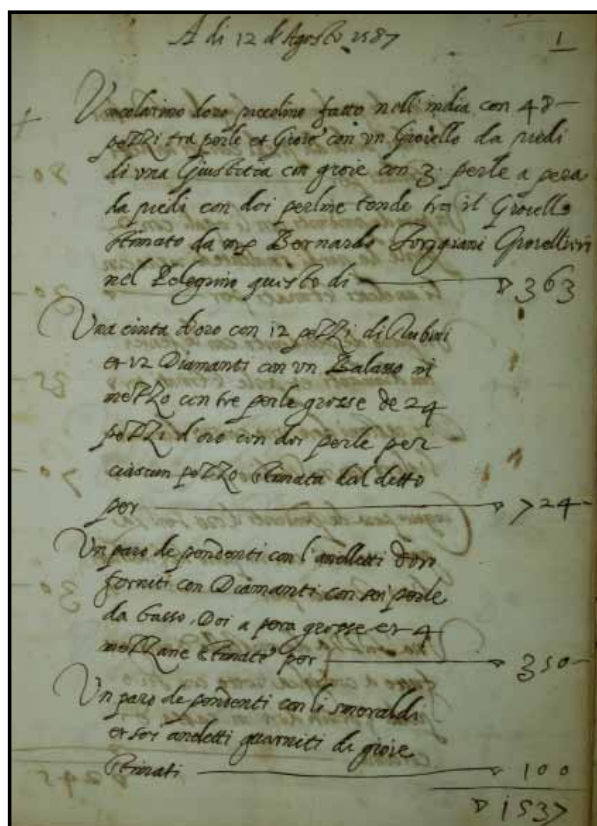 A di 12 d'Agosto 1587
1
Un colarino d'oro piccolino fatto nell'india con 48
pezzi tra perle et Gioie con un Gioiello da piedi
di una Giustitia con gioie con 3 perle a pera
da piedi con doi perline tonde tra il Gioiello
stimato da mr Bernardo Gioielliri
nel Pelegrino questo di 363
Una cinta d'oro con 12 pezzi di Rubini
et 12 Diamanti con un Balasso in
mezzo con tre perle grosse de 24
pezzi d'oro con doi perle per
ciascun pezzo stimata dal detto
per 724
Un paro de pendenti con l'anelletti d'oro
forniti con Diamanti con sei perle
da basso. Doi a pera grosse et 4
mezzane stimate per 350
Un paro de pendenti con li smeraldi
et soi anelletti guarniti di gioie
stimati 100
1537